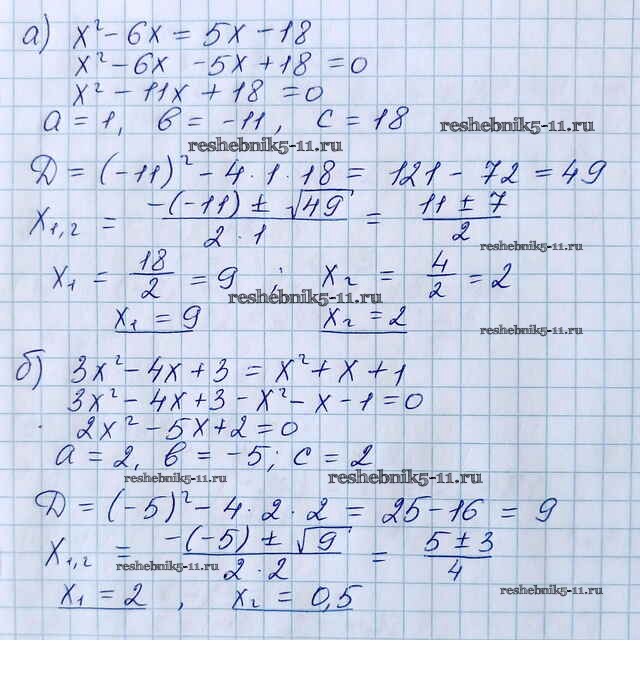 а) x² - 6x = 5x - 18
x² - 6x - 5x + 18 = 0
x² - 11x + 18 = 0
a = 1, b = -11, c = 18
reshebnik5-11.ru
reshebnik5-11.ru
D = (-11)² - 4 · 1 · 18 = 121 - 72 = 49
x₁,₂ = (-(-11) ± √49) / (2 · 1) = (11 ± 7) / 2
reshebnik5-11.ru
x₁ = 18/2 = 9 ; x₂ = 4/2 = 2
reshebnik5-11.ru
x₁ = 9 x₂ = 2
reshebnik5-11.ru
б) 3x² - 4x + 3 = x² + x + 1
3x² - 4x + 3 - x² - x - 1 = 0
2x² - 5x + 2 = 0
a = 2, b = -5; c = 2
reshebnik5-11.ru reshebnik5-11.ru
D = (-5)² - 4 · 2 · 2 = 25 - 16 = 9
x₁,₂ = (-(-5) ± √9) / (2 · 2) = (5 ± 3) / 4
reshebnik5-11.ru
x₁ = 2 , x₂ = 0,5
reshebnik5-11.ru